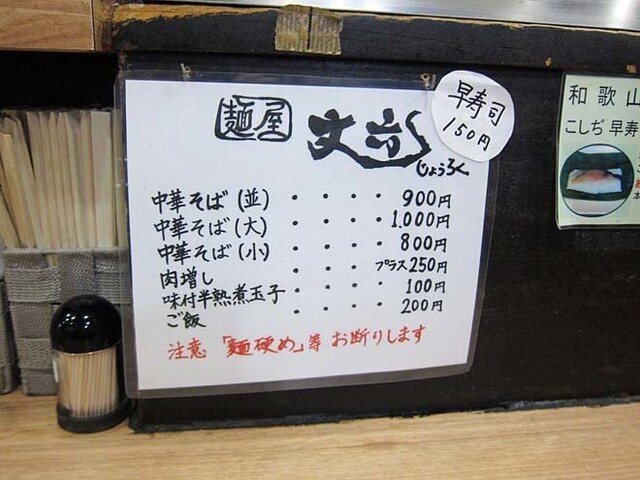 麺屋 丈六
じょうろく
早寿司
150円
中華そば(並)・・・・900円
中華そば(大)・・・・1.000円
中華そば(小)・・・・800円
肉増し・・・プラス250円
味付半熟煮玉子・・・100円
ご飯・・・・200円
注意「麺硬め」等 お断りします
和歌山
こしぢ 早寿